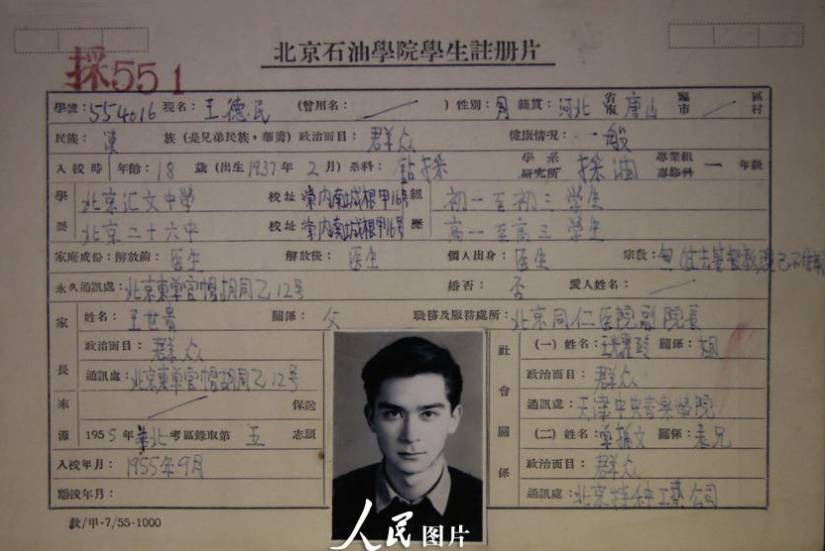 北京石油學院學生註册片
採551
學號：554016 現名：王德民 (曾用名： ) 性別：男 籍貫：河北 省市 唐山 縣市 區村
民族：漢 族 (是兄弟民族，華僑) 政治面目：群众 健康情况：一般
入校時 年齡：18 歲 (出生1937年 2月) 系科：鈷採 學系 研究所 採油 專業組 專修科 一 年級
學 北京汇文中学 校址 崇内南城根甲16号 經 初一至初三 学生
歷 北京二十六中 校址 崇内南城根甲16号 歷 高一至高三 学生
家庭成份：解放前：医生 解放後：医生 個人出身：医生 宗教：無
永久通訊處：北京東单官帽胡同乙12号 婚否：否 愛人姓名：
家長 姓名：王世貴 關係：父 職務及服務處所：北京同仁医院副院長
政治面目：群众
通訊處：北京東单官帽胡同乙12号
家源 保送
1955年 華北考區錄取第 五 志願
入校年月：1955年9月
離校年月：
社會關係 (一) 姓名： 關係：姐
政治面目：群众
通訊處：天津中央音樂學院
(二) 姓名： 關係：表兄
政治面目：群众
通訊處：北京特种工藝公司
款/甲-7/55-1000
人民图片